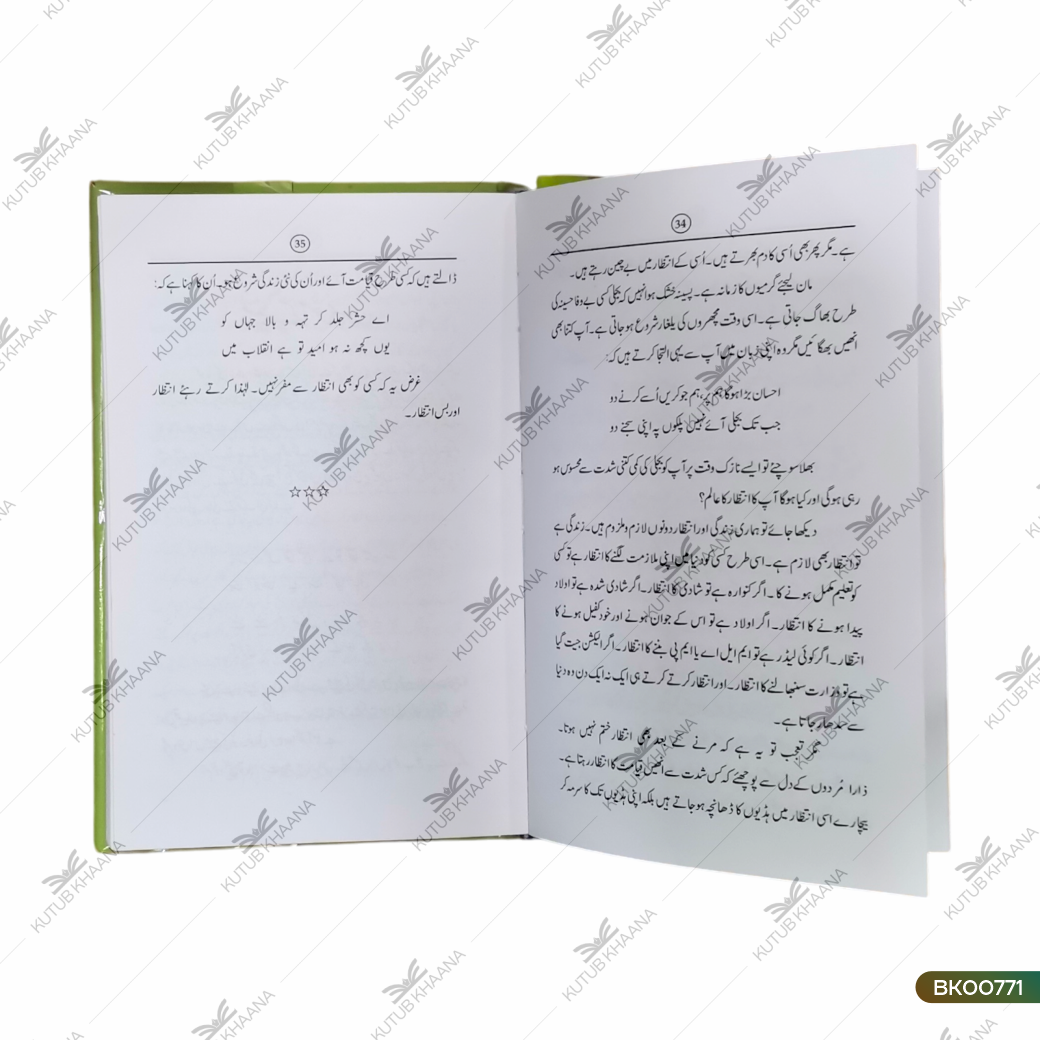 34
ہے۔ مگر پھر بھی اُسی کا دم بھرتے ہیں۔ اُسی کے انتظار میں بے چین رہتے ہیں۔
مان لیجئے گرمیوں کا زمانہ ہے۔ پسینہ خشک ہوا نہیں کہ بجلی کسی بے وفا حسینہ کی
طرح بھاگ جاتی ہے۔ اسی وقت مچھروں کی یلغار شروع ہو جاتی ہے۔ آپ کتنا بھی
انھیں بھگائیں مگر وہ اپنی زبان میں آپ سے یہی التجا کرتے ہیں کہ:
احسان بڑا ہوگا ہم پر، ہم جو کریں اُسے کرنے دو
جب تک بجلی آئے نہیں پلکوں پہ اپنی سجنے دو
بھلا سوچئے تو ایسے نازک وقت پر آپ کو بجلی کی کمی کتنی شدت سے محسوس ہو
رہی ہوگی اور کیا ہوگا آپ کا انتظار کا عالم؟
دیکھا جائے تو ہماری زندگی اور انتظار دونوں لازم و ملزوم ہیں۔ زندگی ہے
تو انتظار بھی لازم ہے۔ اسی طرح کسی کو دنیا میں اپنی ملازمت لگنے کا انتظار ہے تو کسی
کو تعلیم مکمل ہونے کا۔ اگر کنوارہ ہے تو شادی کا انتظار۔ اگر شادی شدہ ہے تو اولاد
پیدا ہونے کا انتظار۔ اگر اولاد ہے تو اس کے جوان ہونے اور خود کفیل ہونے کا
انتظار۔ اگر کوئی لیڈر ہے تو ایم ایل اے یا ایم پی بننے کا انتظار۔ اگر الیکشن جیت گیا
ہے تو وزارت سنبھالنے کا انتظار۔ اور انتظار کرتے کرتے ہی ایک نہ ایک دن وہ دنیا
سے سدھار جاتا ہے۔
مگر تعجب تو یہ ہے کہ مرنے کے بعد بھی انتظار ختم نہیں ہوتا۔
ذارا مُردوں کے دل سے پوچھئے کہ کس شدت سے انھیں قیامت کا انتظار رہتا ہے۔
بیچارے اسی انتظار میں ہڈیوں کا ڈھانچہ ہو جاتے ہیں بلکہ اپنی ہڈیوں تک کا سرمہ کر
35
ڈالتے ہیں کہ کسی طرح قیامت آئے اور اُن کی نئی زندگی شروع ہو۔ اُن کا کہنا ہے کہ:
اے حشر جلد کر تہہ و بالا جہاں کو
یوں کچھ نہ ہو امید تو ہے انقلاب میں
غرض یہ کہ کسی کو بھی انتظار سے مفر نہیں۔ لہٰذا کرتے رہئے انتظار
اور بس انتظار۔
☆☆☆
KUTUB KHAANA
BK00771